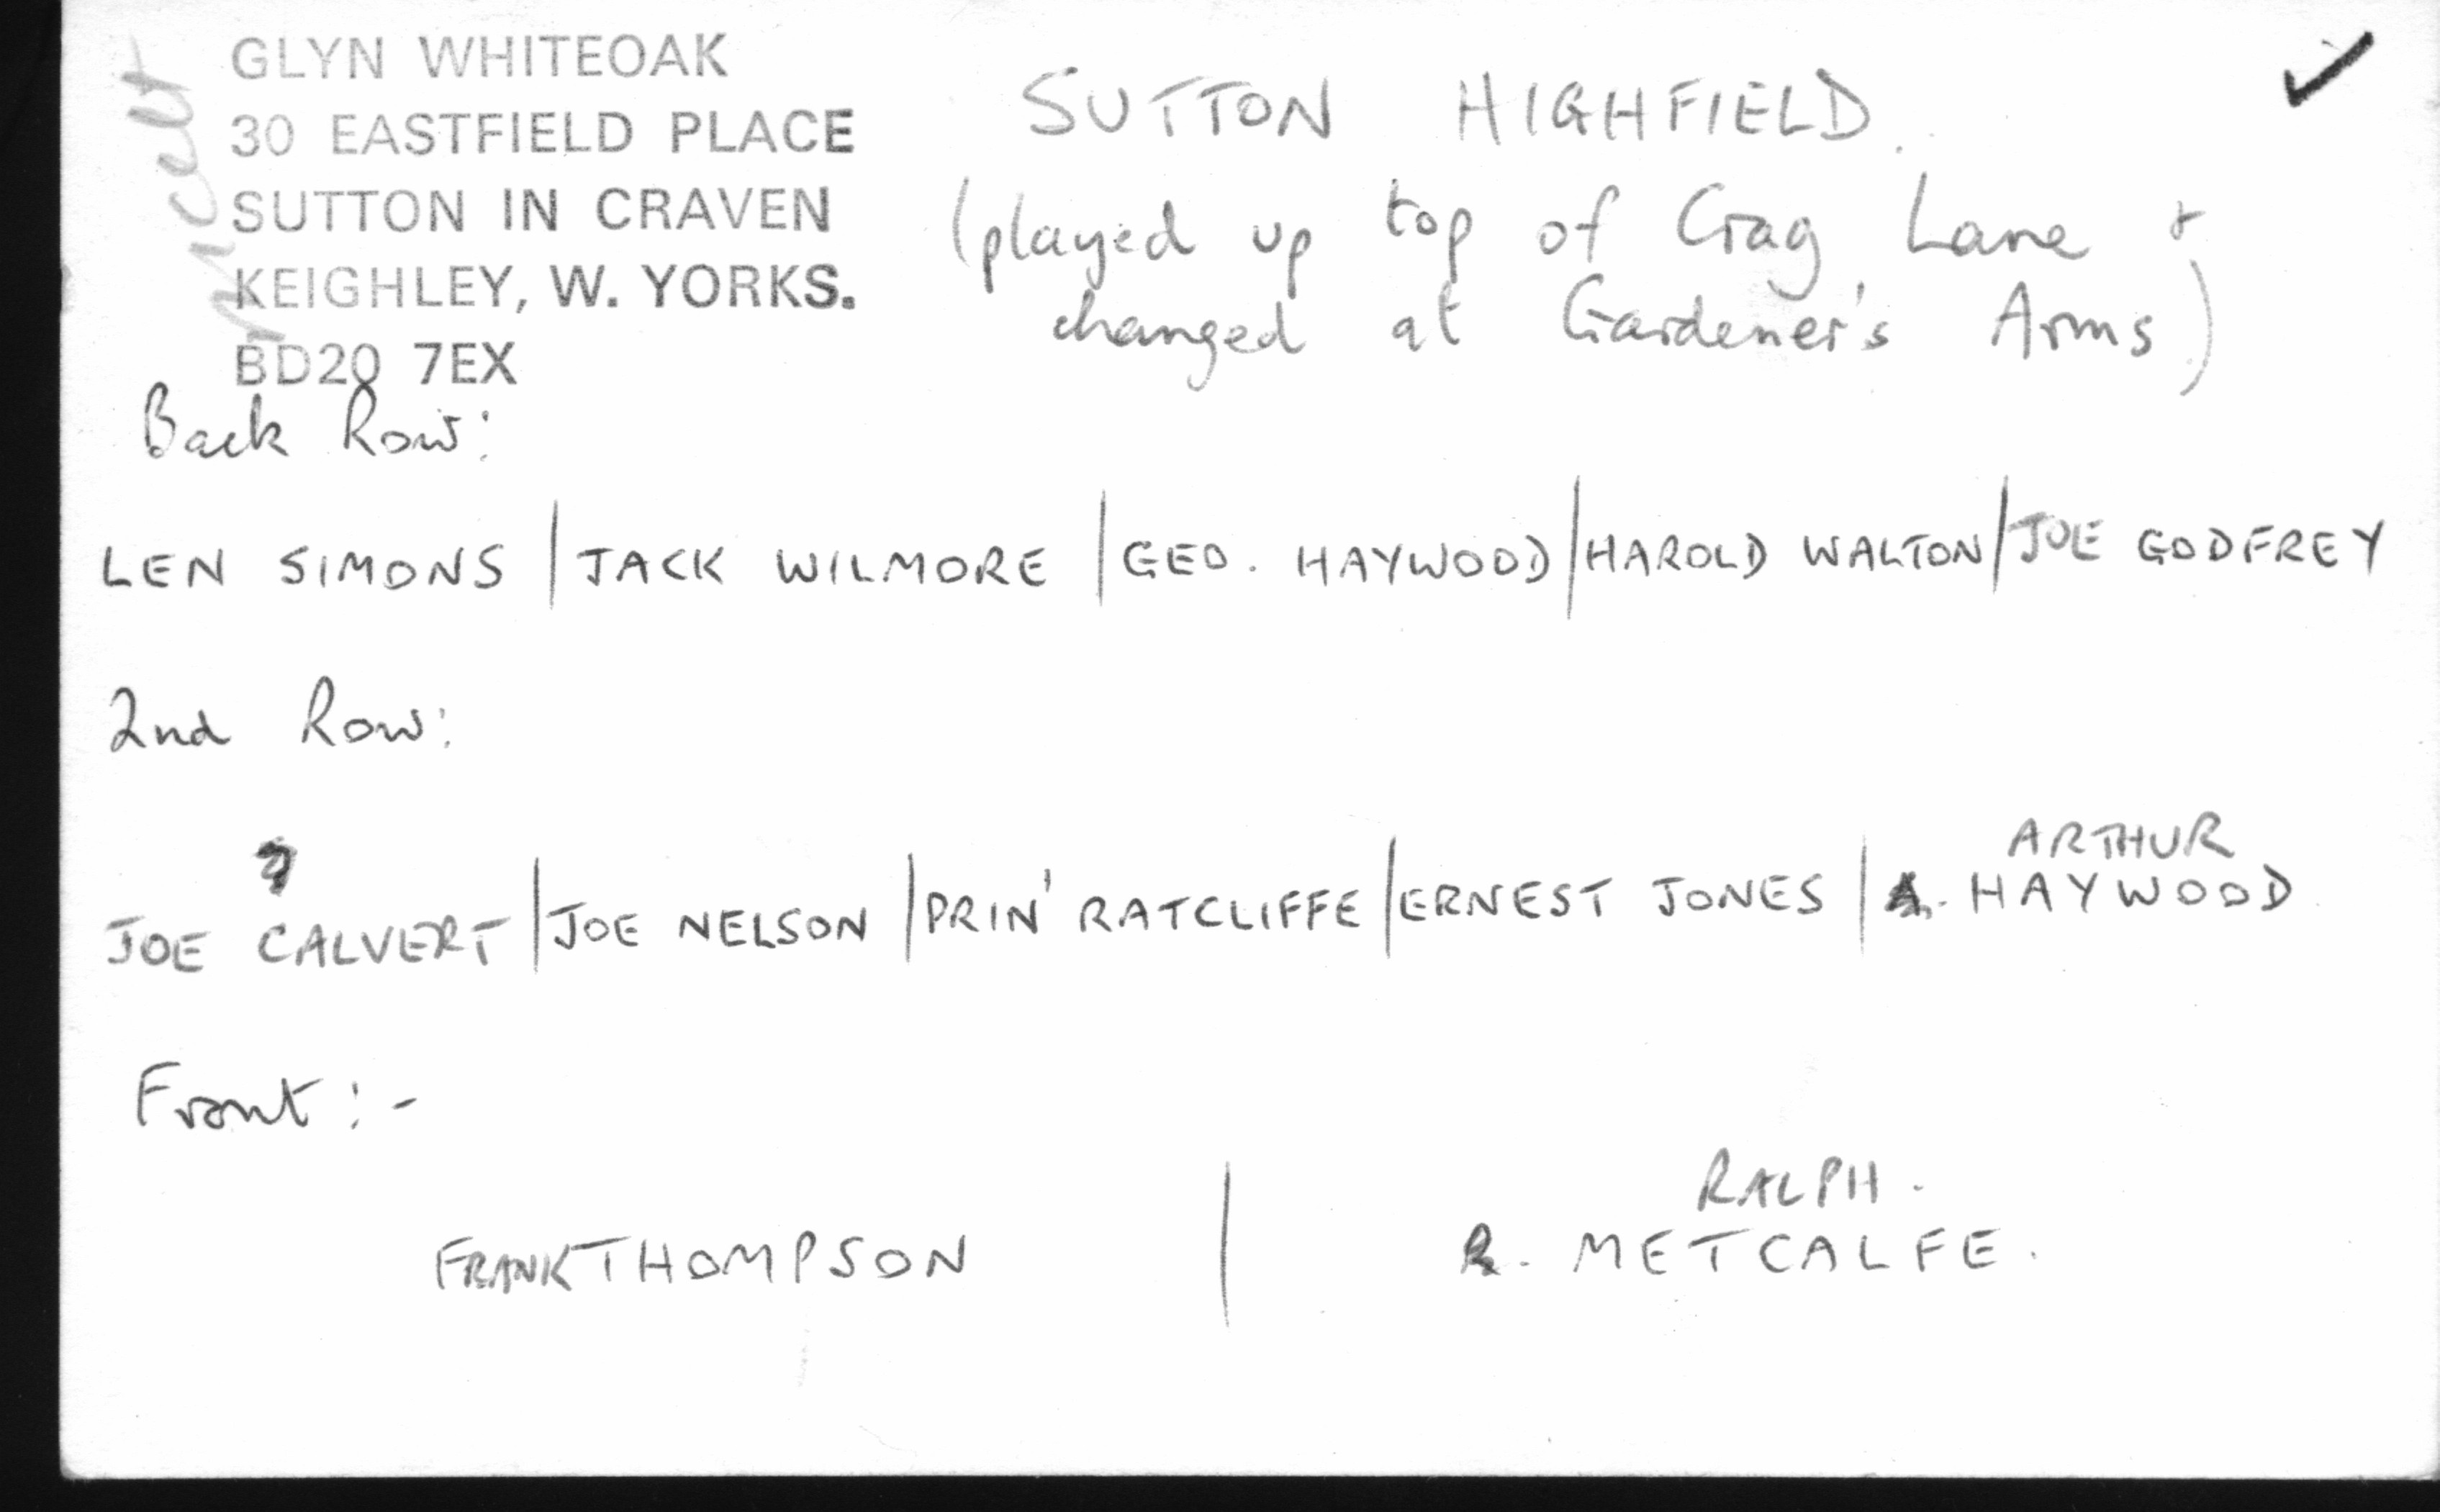 GLYN WHITEOAK
30 EASTFIELD PLACE
SUTTON IN CRAVEN
KEIGHLEY, W. YORKS.
BD20 7EX
SUTTON HIGHFIELD.
(played up top of Crag Lane &
changed at Gardener's Arms)
Back Row:
LEN SIMONS | JACK WILMORE | GEO. HAYWOOD | HAROLD WALTON | JOE GODFREY
2nd Row:
?
ARTHUR
JOE CALVERT | JOE NELSON | PRIN' RATCLIFFE | ERNEST JONES | A. HAYWOOD
Front :-
RALPH.
FRANK THOMPSON | R. METCALFE.